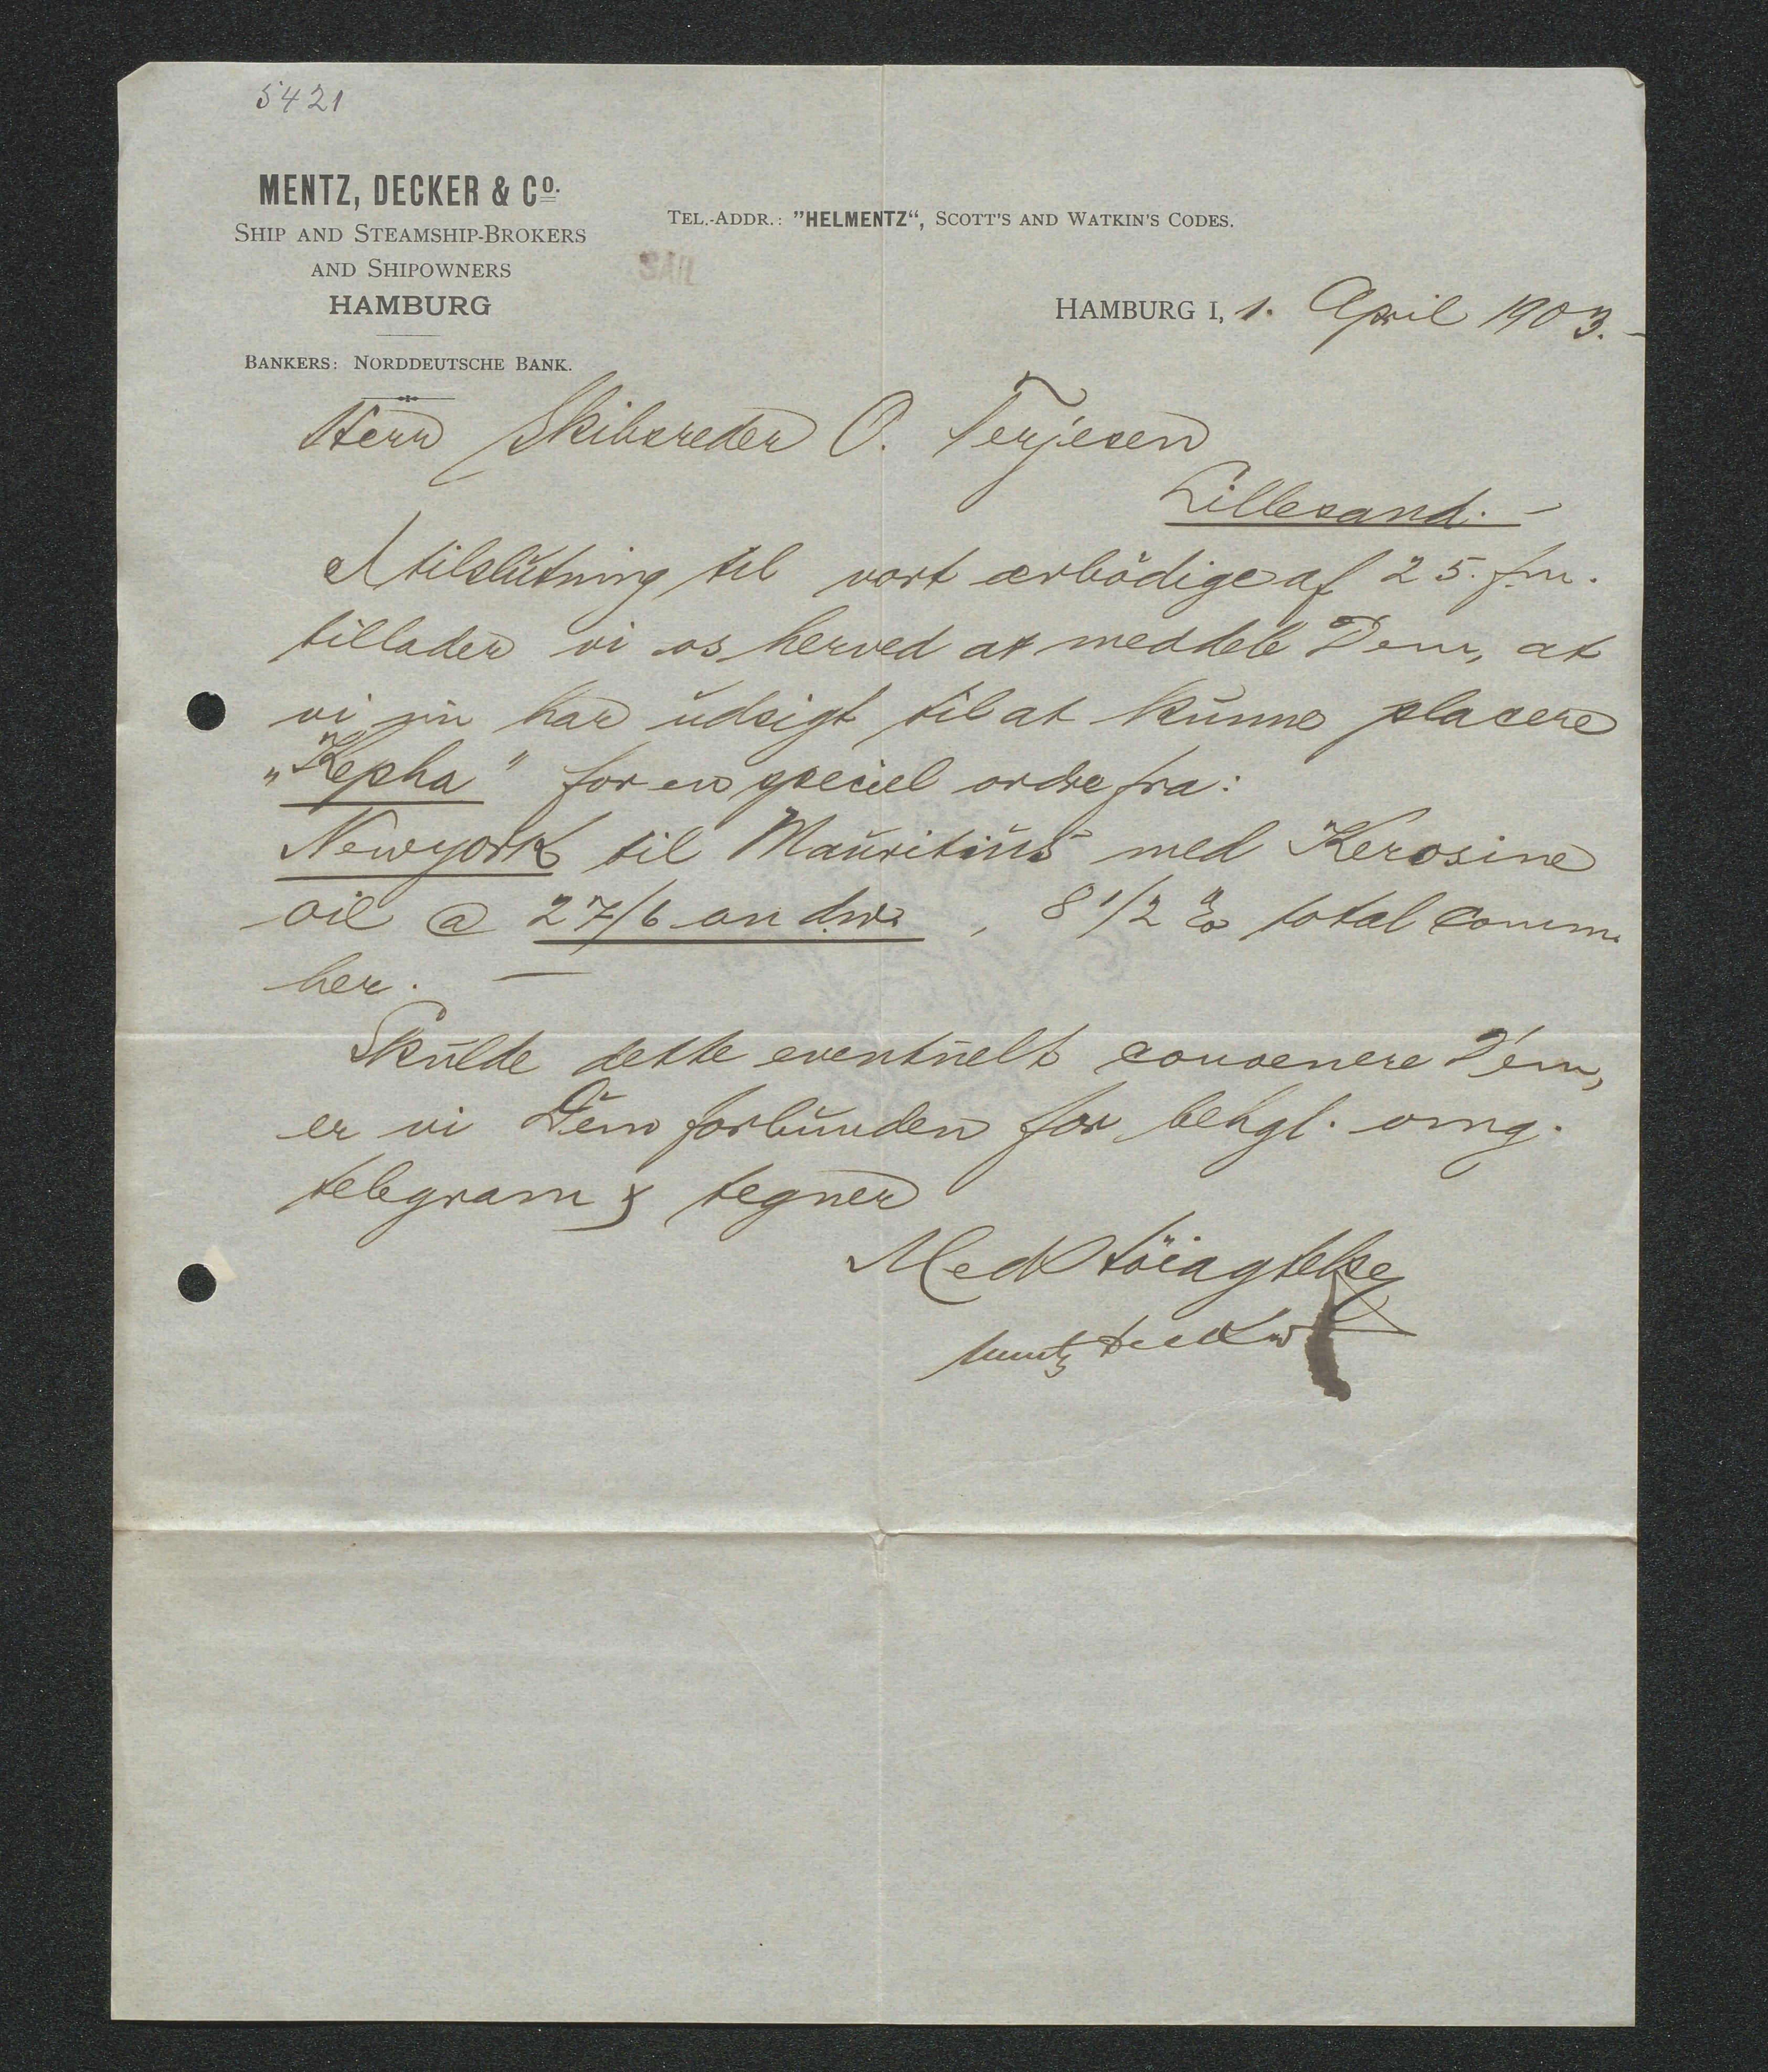 5421
MENTZ, DECKER & Co.
SHIP AND STEAMSHIP-BROKERS
AND SHIPOWNERS
HAMBURG
BANKERS: NORDDEUTSCHE BANK.
TEL.-ADDR.: "HELMENTZ“, SCOTT'S AND WATKIN'S CODES.
SAIL
HAMBURG I, 1. April 1903.-
Herr Skibsreder O. Terjesen
Lillesand.-
I tilslutning til vort ærbödige af 25. fm.
tillader vi os herved at meddele Dem, at
vi nu har udsigt til at kunne placere
„Kepha" for en speciel ordre fra:
Newyork til Mauritius med Kerosine
oil @ 27/6 on dw. , 8 1/2 % total comm.
her. -
Skulde dette eventuelt convenere Dem,
er vi Dem forbunden for behgl. omg.
telegram & tegner
Med Höiagtelse
Mentz Decker